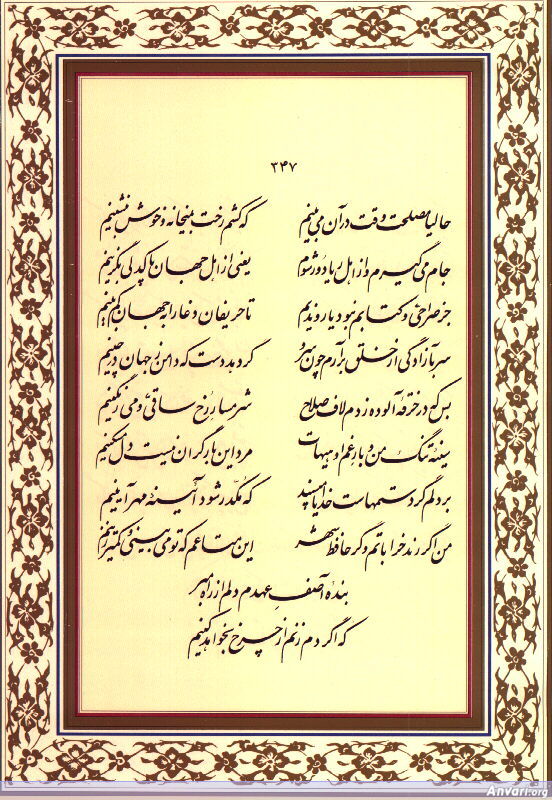 ۳۴۷
حالیا مصلحت وقت در آن می بینم که کشم رخت بمیخانه و خوش بنشینم
جام می گیرم و از اهل ریا دور شوم یعنی از اهل جهان پاکدلی بگزینم
جز صراحی و کتابم نبود یار و ندیم تا حریفان دغا را بجهان کم بینم
سر بآزادگی از خلق برآرم چون سرو گر دهد دست که دامن ز جهان درچینم
بس که در خرقه آلوده زدم لاف صلاح شرمسار رخ ساقی و می رنگینم
سینه تنگ من و بار غم او هیهات مرد این بار گران نیست دل مسکینم
بر دلم گرد ستمهاست خدایا مپسند که مکدر شود آیینه مهر آیینم
من اگر رند خراباتم وگر حافظ شهر این متاعم که تو می بینی و کمتر زینم
بنده آصف عهدم دلم از راه مبر
که اگر دم زنم از چرخ بخواهد کینم
Anvari.org